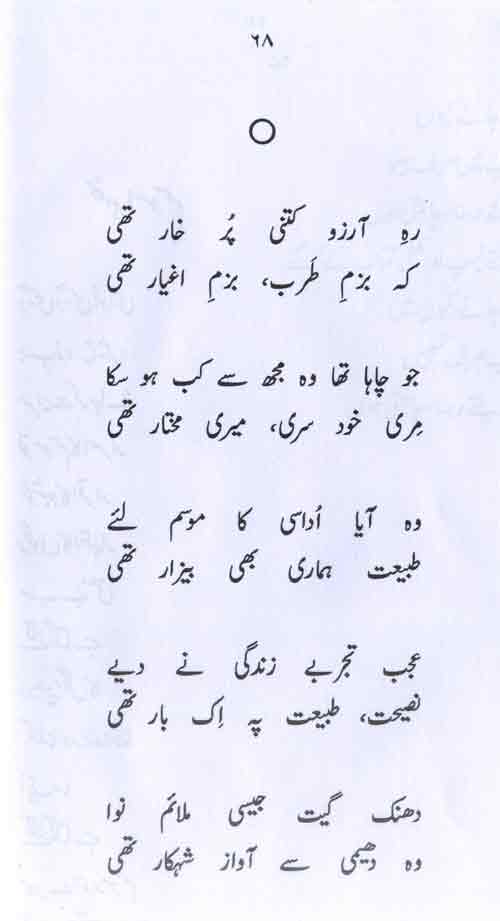 ۶۸
رہِ آرزو کتنی پُر خار تھی
کہ بزمِ طَرب، بزمِ اغیار تھی
جو چاہا تھا وہ مجھ سے کب ہو سکا
مِری خود سری، میری مختار تھی
وہ آیا اُداسی کا موسم لئے
طبیعت ہماری بھی بیزار تھی
عجب تجربے زندگی نے دیے
نصیحت، طبیعت پہ اِک بار تھی
دھنک گیت جیسی ملائم نوا
وہ دھیمی سے آواز شہکار تھی